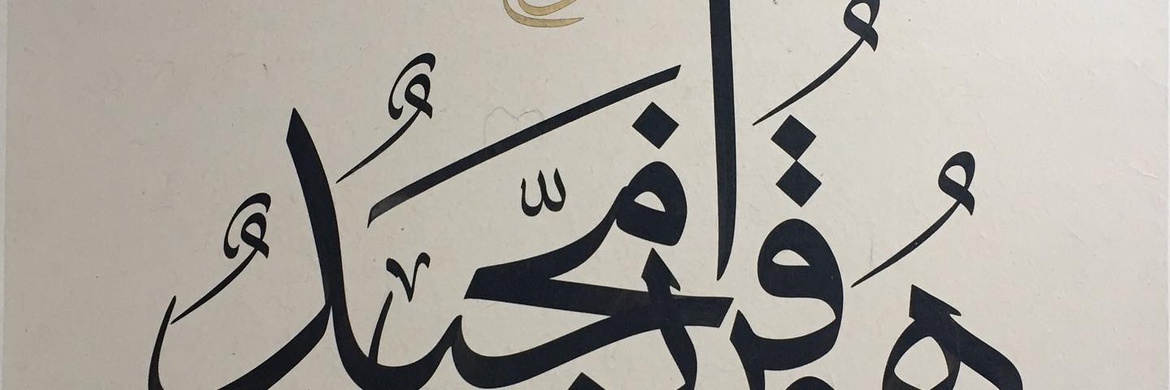 هُو قُرآنٌ مّجيدٌ